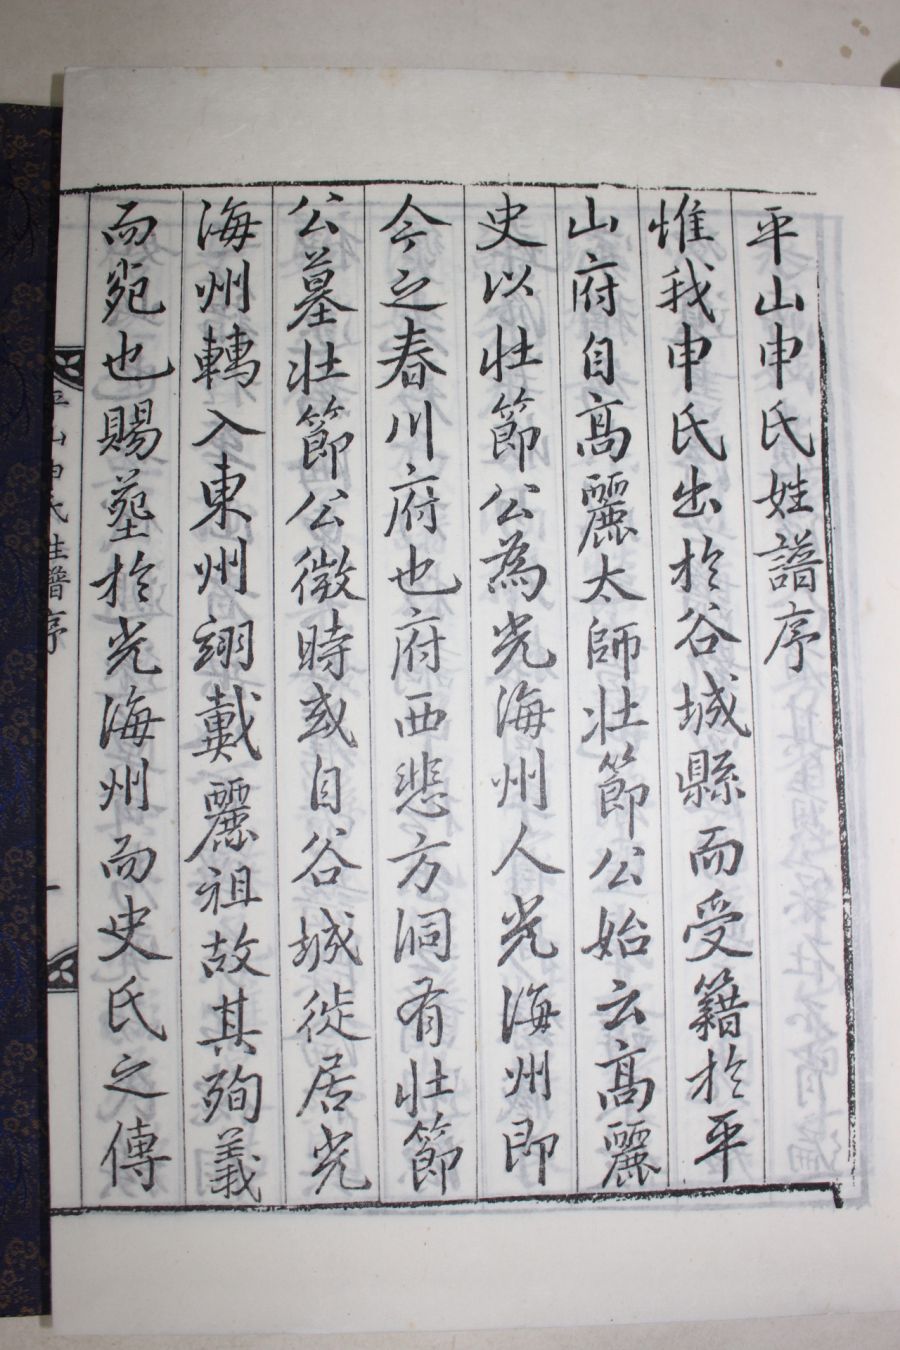 平山申氏姓譜序
惟我申氏出於谷城縣而受籍於平
山府自高麗太師壯節公始云高麗
史以壯節公為光海州人光海州即
今之春川府也府西悲方洞有壯節
公墓壯節公微時或自谷城徙居光
海州轉入東州翊戴麗祖故其殉義
而也賜塟於光海州而史氏之傳
平山申氏姓譜序
一